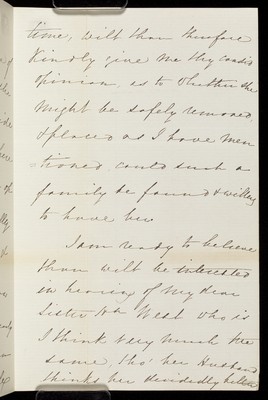 time, wilt thou therefore
kindly give me thy candid
opinion, as to whether she
might be safely removed
& placed as I have men
tioned could such a
family be found & willing
to have her
I am ready to believe
thou wilt be interested
in hearing of my dear
Sister West who is
I think very much the
same, tho' her Husband
thinks her decidedly better